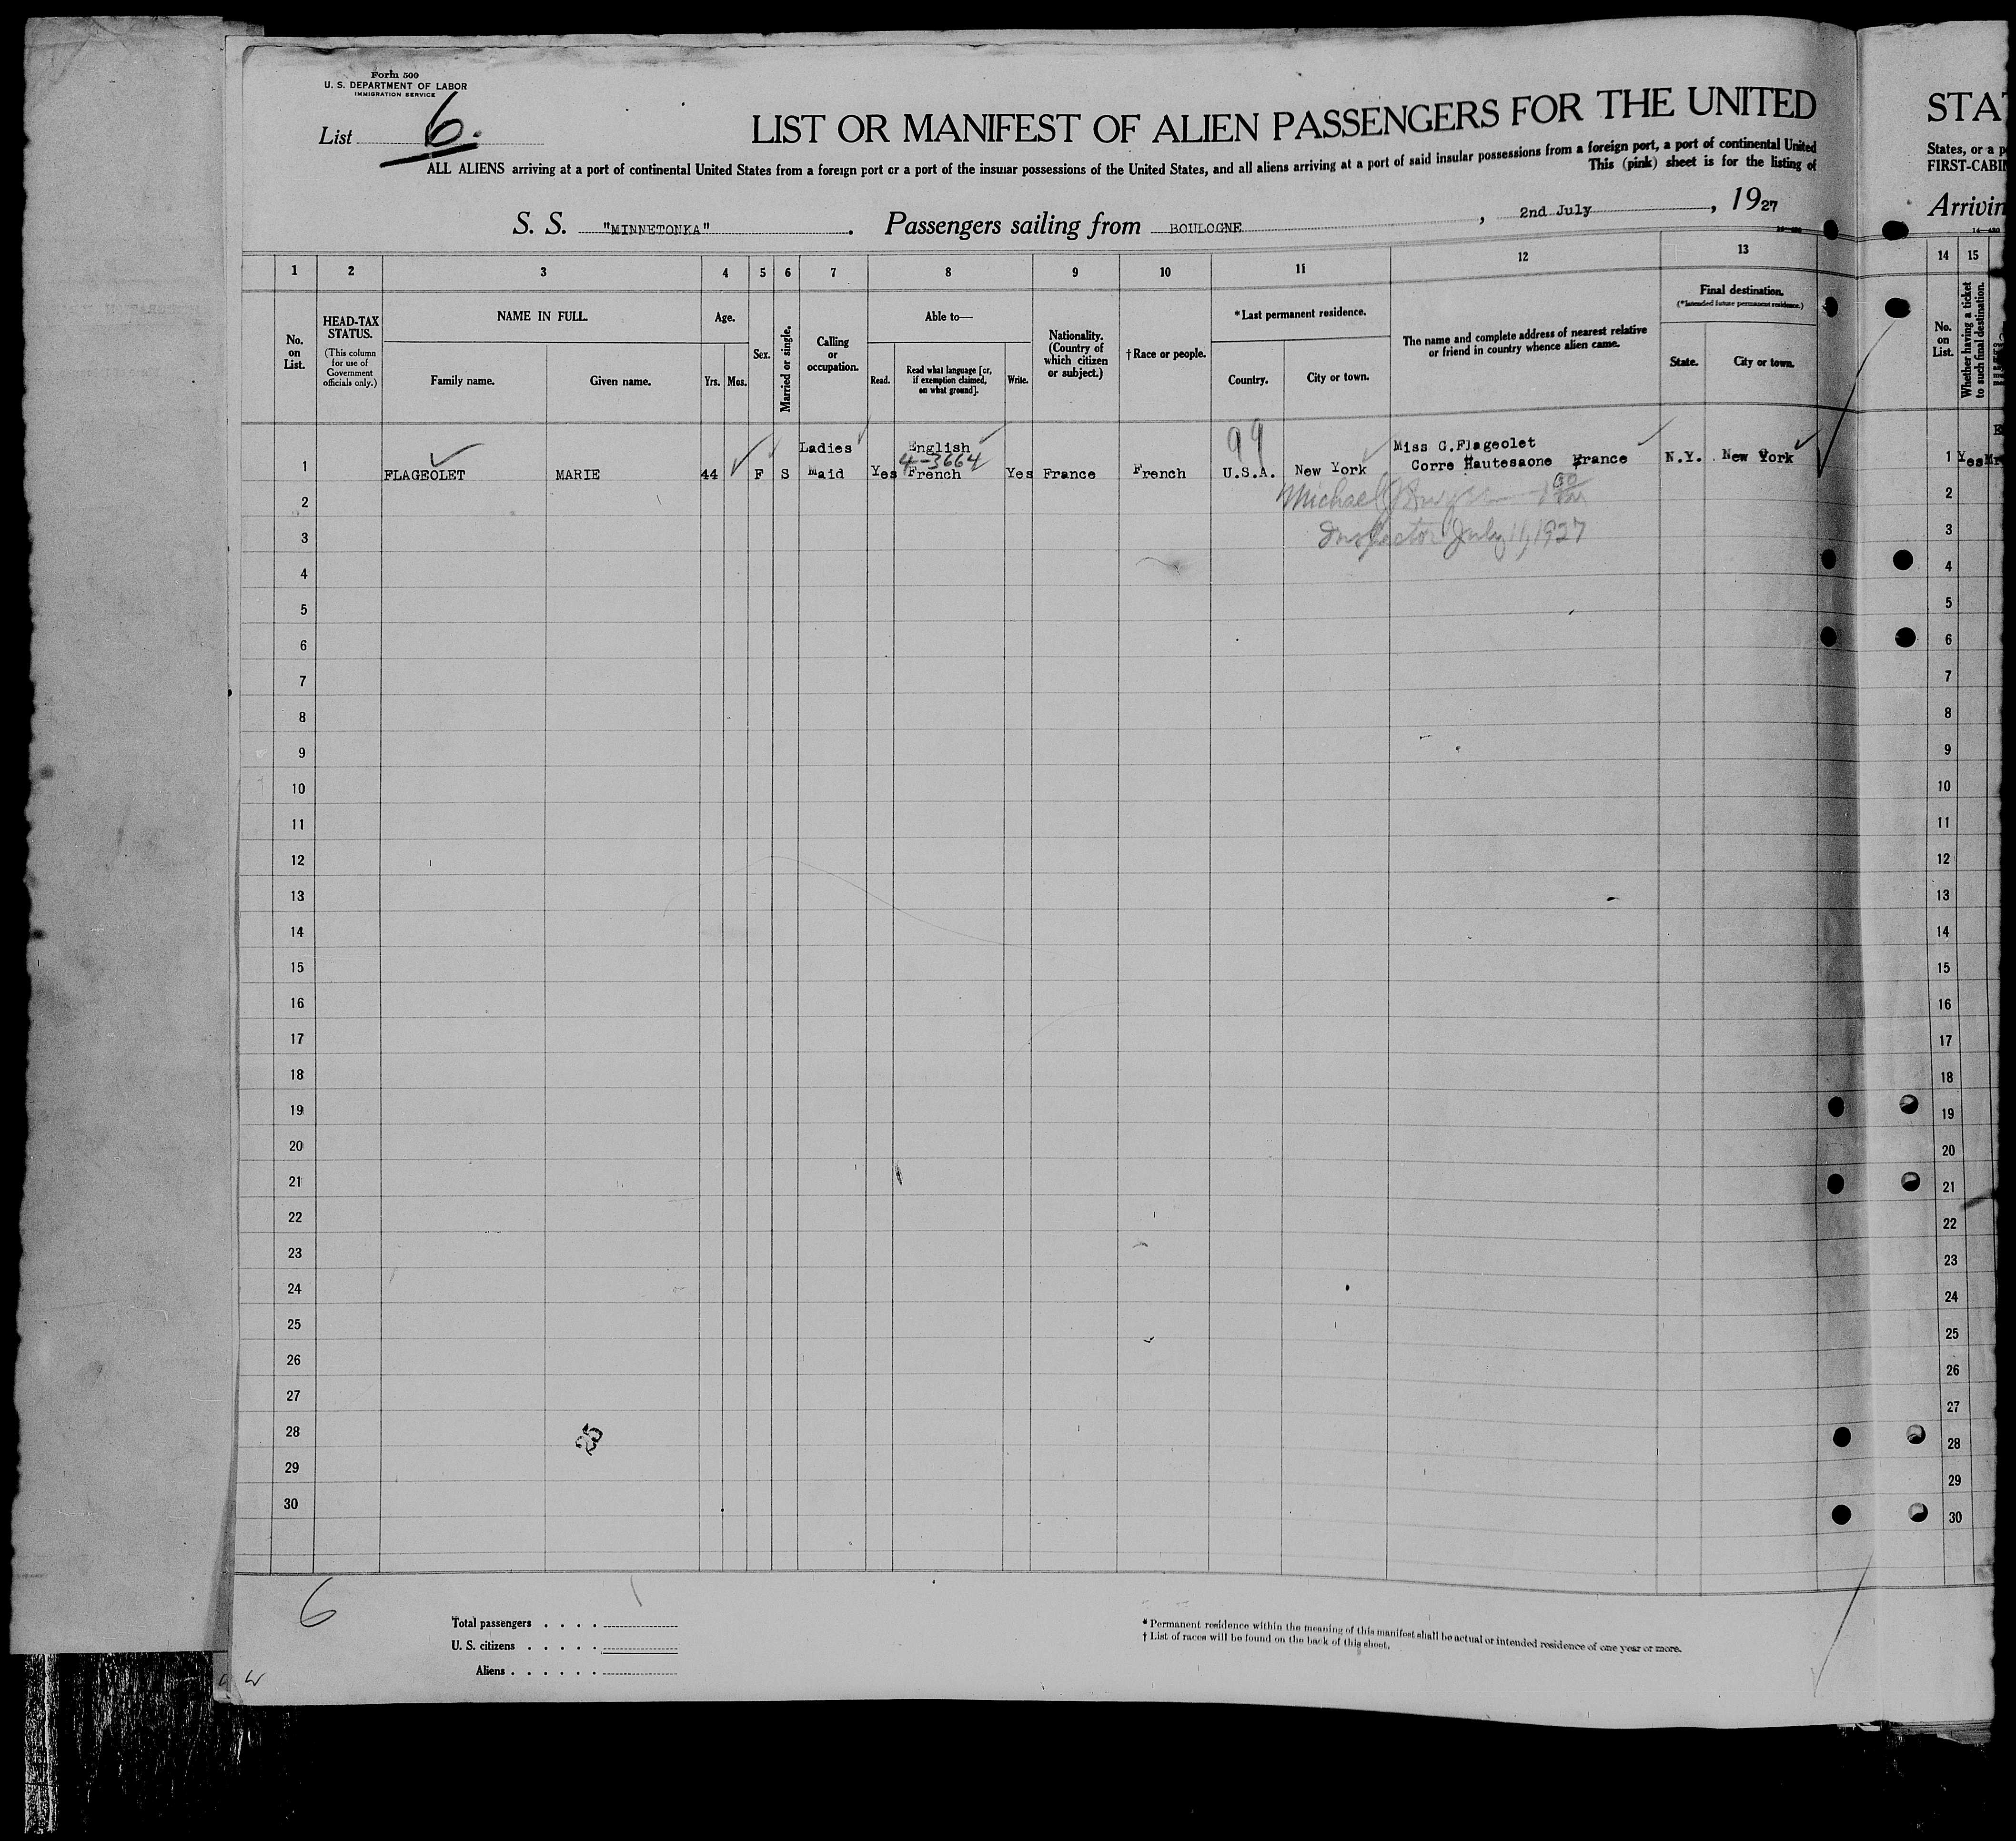 Form 500
U. S. DEPARTMENT OF LABOR
IMMIGRATION SERVICE
List 6.
LIST OR MANIFEST OF ALIEN PASSENGERS FOR THE UNITED
ALL ALIENS arriving at a port of continental United States from a foreign port or a port of the insular possessions of the United States, and all aliens arriving at a port of said insular possessions from a foreign port, a port of continental United
This (pink) sheet is for the listing of
S. S. "MINNETONKA". Passengers sailing from BOULOGNE, 2nd July, 1927
1 2 3 4 5 6 7 8 9 10 11 12 13
No. on List.
HEAD-TAX STATUS.
(This column for use of Government officials only.)
NAME IN FULL.
Family name. Given name.
Age.
Yrs. Mos.
Sex.
Married or single.
Calling or occupation.
Able to—
Read. Read what language [or, if exemption claimed, on what ground]. Write.
Nationality. (Country of which citizen or subject.)
†Race or people.
*Last permanent residence.
Country. City or town.
The name and complete address of nearest relative or friend in country whence alien came.
Final destination.
(*Intended future permanent residence.)
State. City or town.
99
Ladies English Miss G.Flageolet
4-3664
1 FLAGEOLET MARIE 44 F S Maid Yes French Yes France French U.S.A. New York Corre Hautesaone France N.Y. New York
2 Michael
3 Inspector July 11, 1927
4
5
6
7
8
9
10
11
12
13
14
15
16
17
18
19
20
21
22
23
24
25
26
27
28
29
30
6
Total passengers . . . .
U. S. citizens . . . . .
Aliens . . . . . .
* Permanent residence within the meaning of this manifest shall be actual or intended residence of one year or more.
† List of races will be found on the back of this sheet.
STA
States, or a p
FIRST-CABIN
Arrivin
14 15
No. on List.
Whether having a ticket to such final destination.
1 Yes
2
3
4
5
6
7
8
9
10
11
12
13
14
15
16
17
18
19
20
21
22
23
24
25
26
27
28
29
30